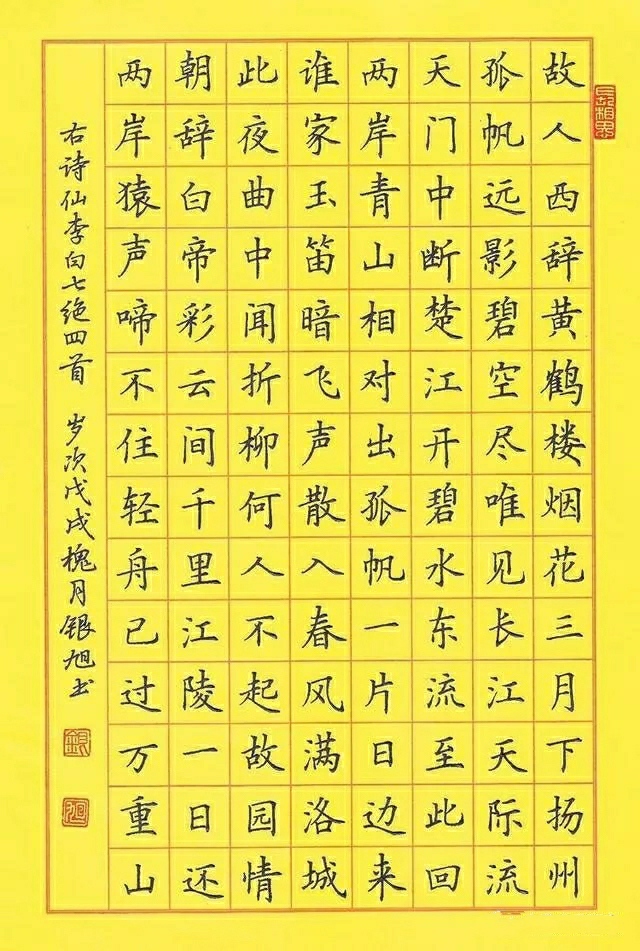 故人西辞黄鹤楼烟花三月下扬州
孤帆远影碧空尽唯见长江天际流
天门中断楚江开碧水东流至此回
两岸青山相对出孤帆一片日边来
谁家玉笛暗飞声散入春风满洛城
此夜曲中闻折柳何人不起故园情
朝辞白帝彩云间千里江陵一日还
两岸猿声啼不住轻舟已过万重山
右诗仙李白七绝四首 岁次戊戌槐月银旭书
长相思
银
旭